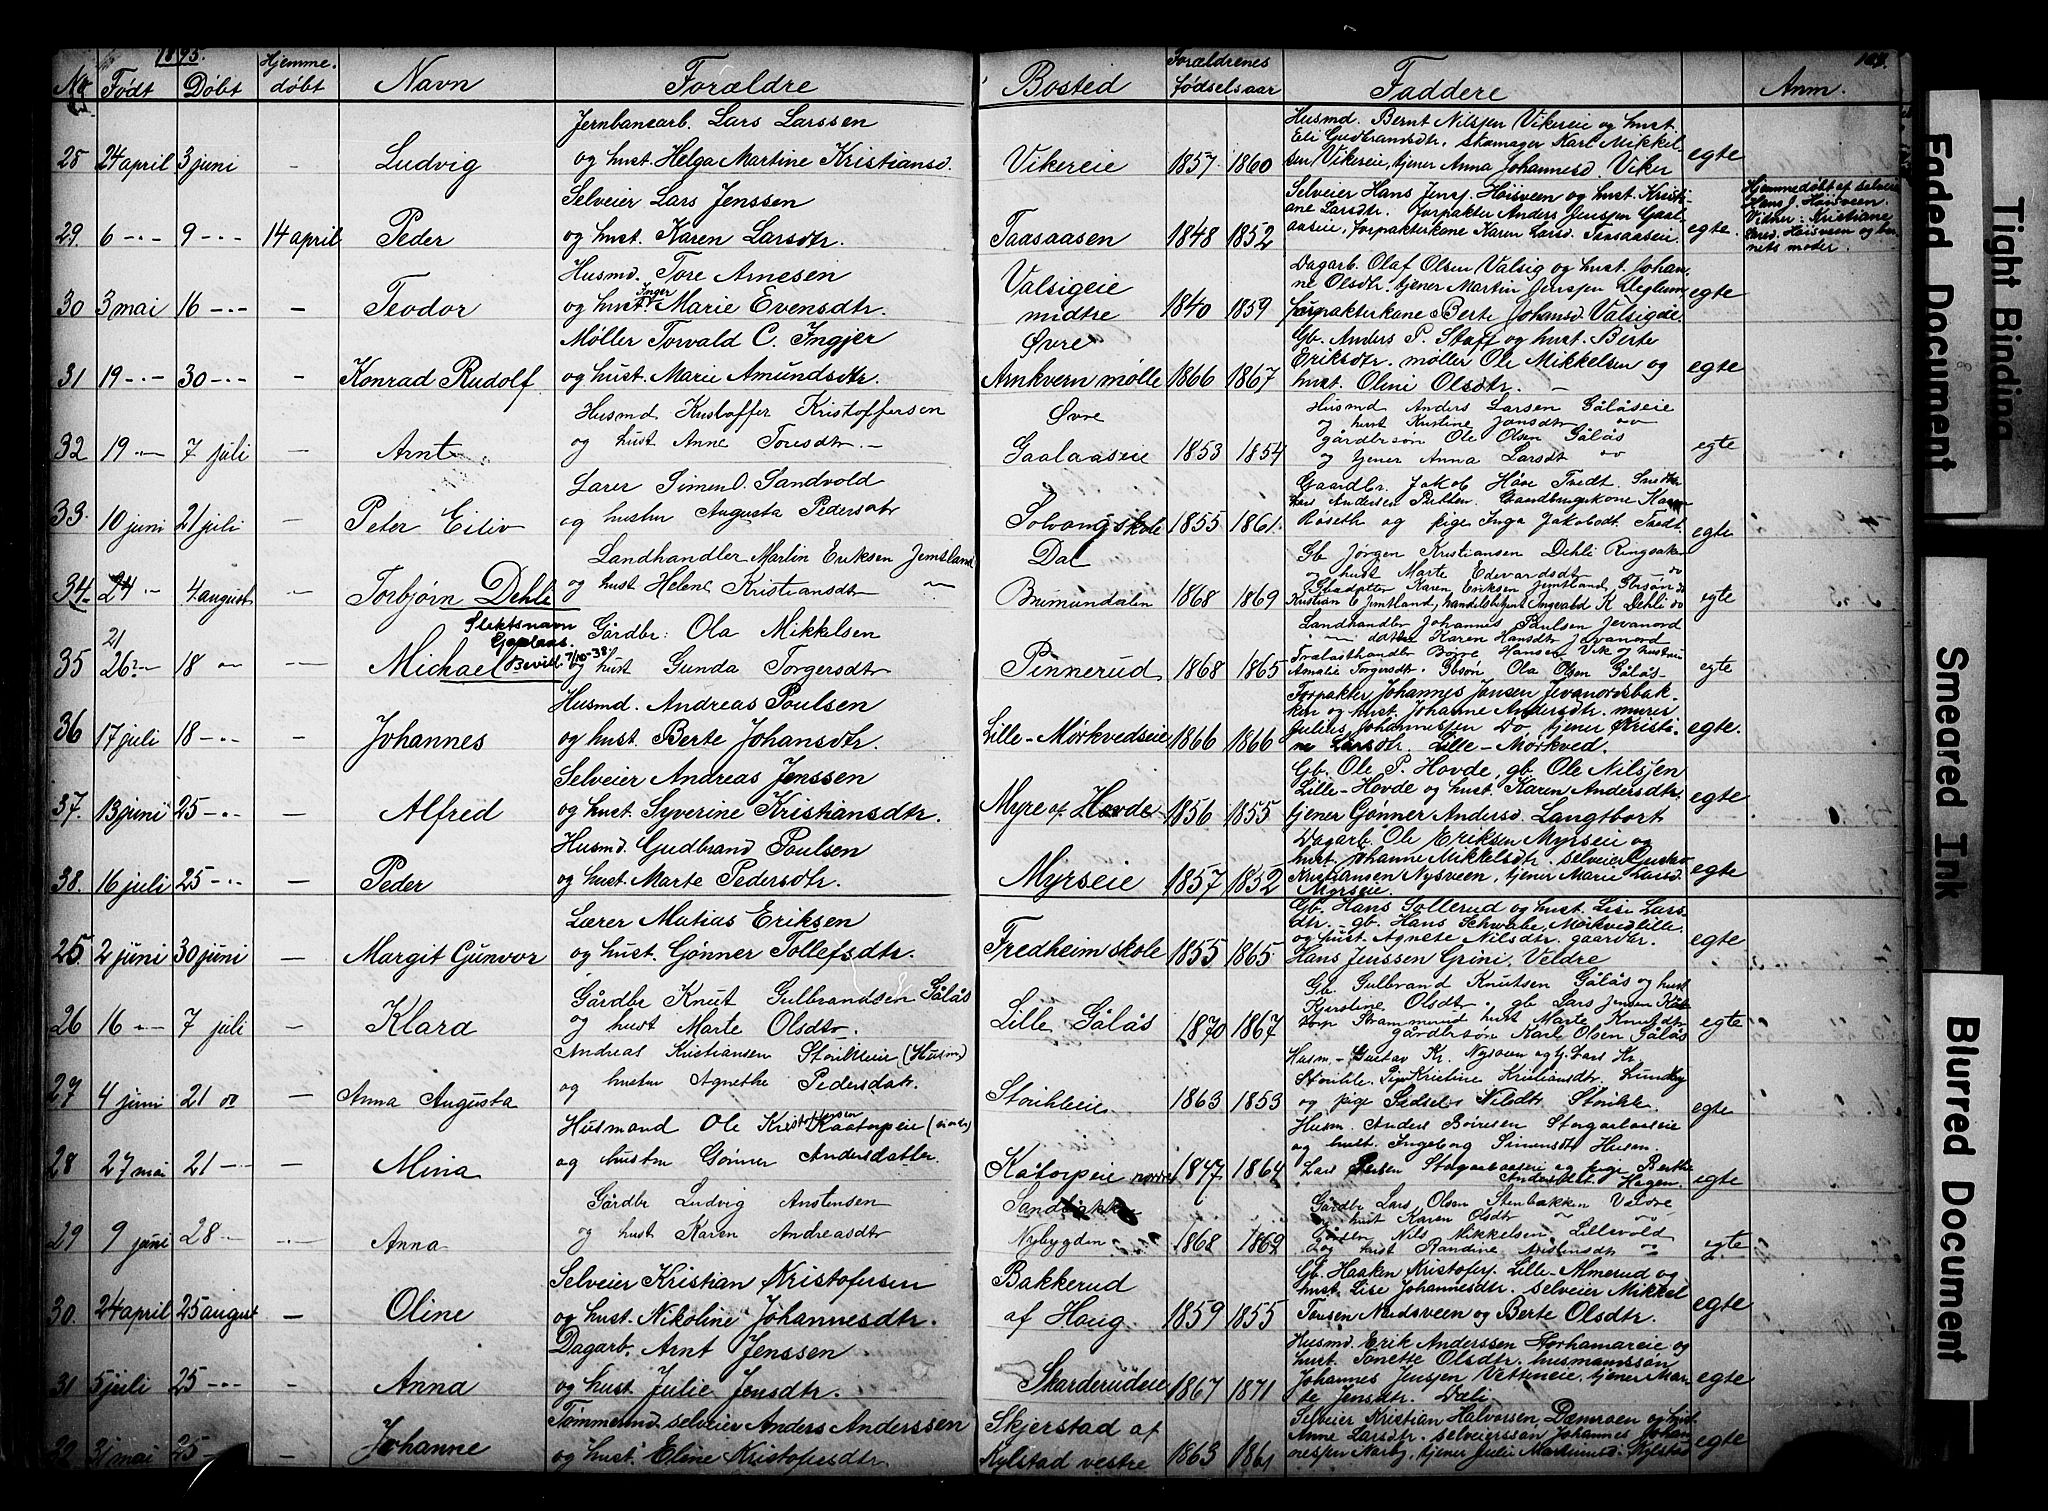 1895.
No Født Døbt Hjemme-
døbt Navn Forældre Bosted Forældrenes
Fødselsaar Faddere Anm. 164.
Jernbanearb. Lars Larssen
Husmd. Bernt Nilssen Vikereie og hust.
Eli Gudbransdtr. skomager Karl Mikkel-
28 24 april 3 juni - Ludvig og hust. Helga Martine Kristiansd. Vikereie 1857 1860 sen Vikereie, tjener Anna Johannesd. Viker egte
Selveier Lars Jenssen
Selveier Hans Jensj. Höisveen og hust. Kristi-
ane Larsdtr. forpakter Anders Jenssen
29. 6 -"- 9 -"- 14 april Peder og hust. Karen Larsdtr. Taasaasen 1848 1852 aaseie, forpakterkone Karen Larsd. Taasaaseie. egte
Hjemmedøbt af selveier
Hans J. Höisveen.
Vidner: Kristiane
Larsd. Höisveen og bar-
nets moder.
Husmd. Tore Arnesen
Dagarb. Olaf Olsen Valsig og hust. Johan-
ne Olsdtr. tjener Martin Jenssen
30 3 mai 16 -"- - Teodor og hust. Inger Marie Evensdtr. Valsigeie
midtre 1840 1859 forpakterkone Berte Johansd. Valsigeie. egte
Möller Torvald C. Ingjer
Øvre
Gb. Anders P. Staff og hust. Berte
Eriksdtr. møller Ole Mikkelsen og
31 19 -"- 30 -"- - Konrad Rudolf. og hust. Marie Amundsdtr. Arnkvern mølle 1866 1867 hust. Oline Olsdtr. - egte
Husmd Kristoffer Kristoffersen
Øvre
Husmd Anders Larsen Gålåseie
og hust Kristine Jansdtr
gårdbrsøn Ole Olsen Gålås
32 19 -"- 7 juli - Arnt og hust Anne Toresdtr. - Gaalaaseie 1853 1854 og tjener Anna Larsdt egte
Lærer Simen O. Sandvold
Gaardbr. Jakob Tvedt.
Gaardbrugskone Karen
33. 10 juni 21 juli - Peter Eiliv og hustru Augusta Pedersdtr Solvang skole 1855 1861. Røseth og pige Inga Jakobsdt. Tvedt egte
Landhandler Martin Eriksen Jemtland
Dal
Gb Jørgen Kristiansen Dehli Ringsaker
og hust Marte Edevardsdtr
34. 24 -"- 4 august - Torbjørn Dehli og hust Helene Kristiansdtr Brumundalen 1868 1869 Karen Eriksen Jemtland,
Kristian E Jemtland, handelsbetjent Ingevald K Dehli do egte
Slektsnavn
Gaalaas.
Bevill. 7/10-38.
Gårdbr: Ola Mikkelsen
Landhandler Johannes Paulsen Jevanord
datter Karen Hansdtr Jevanord
21
35 26 -"- 18 - Michael og hust Gunda Torgersdtr Pinnerud 1868 1865 Trælasthandler Børre Hansen Vik og hustru
Amalie Torgersdtr. Gbsøn Ola Olsen Gålås egte
Husmd. Andreas Poulsen
Forpakter Johannes Jansen Jevanordsbak-
ken og hust. Johanne Andersdtr. murer
36 17 juli 18 -"- - Johannes og hust. Berte Johansdtr. Lille-Mørkvedseie 1866 1866 Julius Johannessen Do tjener Kristi-
ne Larsdtr. Lille-Mørkved. egte.
Selveier Andreas Jenssen
Gb. Ole P. Hovde, gb. Ole Nilssen
Lille-Hovde og hust. Karen Andersdtr.
37. 13 juni 25 -"- - Alfred og hust. Syverine Kristiansdtr. Myre af Hovde 1856 1855 tjener Gønner Andersd. Langtbort egte
Husmd. Gudbrand Poulsen
Dagarb. Ole Eriksen Myrseie og
hust. Johanne Mikkelsdtr. selveier Gustav
38. 16 juli 25 -"- - Peder og hust. Marte Pedersdtr. Myrseie 1857 1852 Kristiansen Nysveen, tjener Marie Larsd.
Myrseie. egte
Lærer Matias Eriksen
Gb. Hans Sollerud og hust. Lise Lars-
dtr. gb. Hans Schwabe, Mørkved lille
25. 2 juni 30 juni - Margit Gunvor og hust. Gønner Tollefsdtr. Fredheim skole 1855 1865 og hust. Agnete Nilsdtr. gaardbr.
Hans Jenssen Grini, Veldre egte
Gårdbr Knut Gulbrandsen Gålås
Gb. Gulbrand Knutsen Gålås og hust
Kjerstine Olsdtr. gb Lars Jensen
26 16 -"- 7 juli - Klara og hust Marte Olsdtr. Lille Gålås 1870 1867 hust Marte Knutsdtr
gårdbrsøn Karl Olsen Gålås egte
Andreas Kristiansen Storihleie (Husm)
Husm- Gustav Kr. Nysveen og Lars Kr.
Storihle. Pige Kristine Kristiansdtr. Lundby
27 4 juni 21 - Anna Augusta og hustru Agnethe Pedersdatr. Storihleie 1863 1853 og pige Sidsel Nilsdtr Storihle. egte
Husmand Ole Kristiansen Kaatorpeie
Husm. Anders Børesen Storgaalaaseie
og hust. Ingeborg Simensdt Husem
28 27 mai 21 - Mina og hustru Gønner Andersdatter. Kåtorpeie nordre 1847 1864 Lars Storgaalaaseie og pige Berthe
Andersdt. Hagen. egte
Gårdbr Ludvig Anstensen
Sandbakken
Gårdbr Lars Olsen Stenbakken Veldre
og hust Karen Olsdtr
29 9 juni 28 - Anna og hust Karen Andreasdtr Nybygden 1868 1869 Nils Mikkelsen Lillevold
og hust Randine Anstensdtr egte
Selveier Kristian Kristofersen
Bakkerud
Gb. Haaken Kristofersj. Lille-Almerud og
hust. Lise Johannesdtr. selveier Mikkel
30. 24 april 25 august - Oline og hust. Nikoline Johannesdtr. af Houg. 1859 1855 Tonsen Nordsveen og Berte Olsdtr. egte
Dagarb. Arnt Jenssen
Husmd. Erik Anderssen Storhamareie og
hust. Tonette Olsdtr. husmanssøn
31 5 juli 25 -"- - Anna og hust. Julie Jensdtr. Skarderudeie 1867 1871 Johannes Jenssen Vettineie, tjener Mar-
te Jensdtr. Dæli egte
Tømmermd. selveier Anders Anderssen
Skjerstad af
Selveier Kristian Halvorsen, Dæmroen og hust.
Anne Larsdtr. selveierssøn Johannes Johan-
32. 31 mai 25 - - Johanne og hust. Eline Kristofersdtr Kylstad vestre 1863 1861 nessen Narby, tjener Julie Martinusd. Kylstad egte
Faded Document
Tight Binding
Smeared Ink
Blurred Document